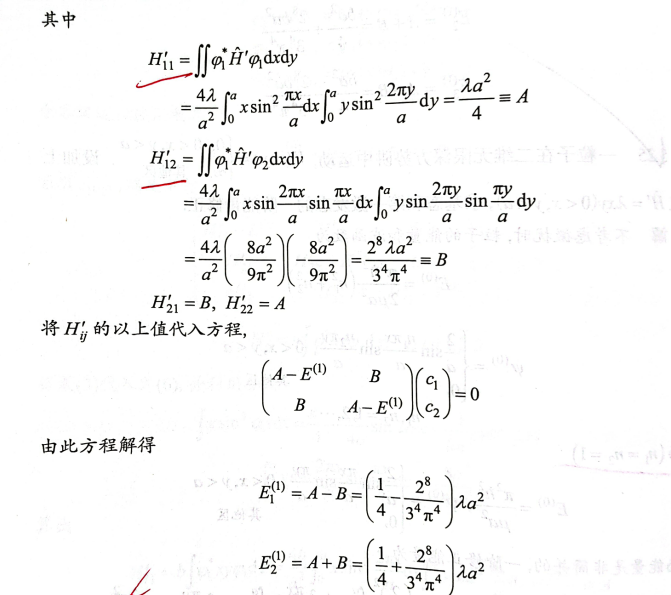 其中
H′₁₁ = ∬φ₁*Ĥ′φ₁dxdy
= 4λ/a² ∫₀ᵃ x sin² πx/a dx ∫₀ᵃ y sin² 2πy/a dy = λa²/4 ≡ A
H′₁₂ = ∬φ₁*Ĥ′φ₂dxdy
= 4λ/a² ∫₀ᵃ x sin 2πx/a sin πx/a dx ∫₀ᵃ y sin 2πy/a sin πy/a dy
= 4λ/a² (−8a²/9π²)(−8a²/9π²) = 2⁸λa²/3⁴π⁴ ≡ B
H′₂₁ = B, H′₂₂ = A
将 H′ᵢⱼ 的以上值代入方程,
(A − E⁽¹⁾ B
B A − E⁽¹⁾)(c₁
c₂) = 0
由此方程解得
E₁⁽¹⁾ = A − B = (1/4 − 2⁸/3⁴π⁴)λa²
E₂⁽¹⁾ = A + B = (1/4 + 2⁸/3⁴π⁴)λa²